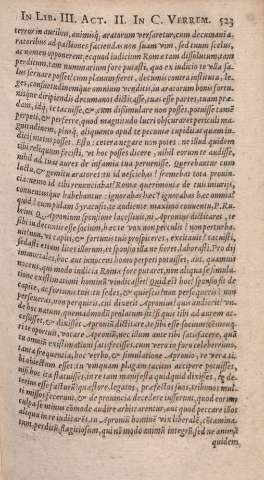 IN LIB. III. ACT. II. IN C. VERREM. 523
terror in auribus, animisq́; aratorum versaretur, cum decumani a-
ratoribus ad pactiones faciendas non suam vim, sed tuum scelus,
ac nomen opponerent, ecquod iudicium Romæ tam dissolutum, tam
perditum, tam nummarium fore putasti, quo ex iudicio te vlla Sa-
lus seruare posset? cum planum fieret, decumis contra instituta, le-
ges, consuetudinemque omnium venditis, in aratorum bonis fortu-
nisque diripiendis decumanos dictitasse, tuas esse partes, tuam præ-
dam, idq́; te tacuisse, &, cum dissimulare non posses, potuisse tamen
perpeti, & perferre, quod magnitudo lucri obscuraret periculi ma-
gnitudinem, plusq́; aliquanto apud te pecuniæ cupiditas quam iu-
dicij metus posset. Esto: cetera negare non potes: ne illud quidem
tibi reliquum fecisti, vt hoc posses dicere, nihil eorum te audisse,
nihil ad tuas aures de infamia tua peruenisse. Querebantur cum
luctu, & gemitu aratores: tu id nesciebas? fremebat tota prouin-
cia: nemo id tibi renunciabat? Romæ querimoniæ de tuis iniurijs,
conuentusque habebantur: ignorabas hoc? ignorabas hæc omnia?
quid? cum palàm Syracusis, te audiente maximo conuentu,
Q. Apronium sponsione lacessiuit, ni Apronius dictitaret, te
sibi in decumis esse socium, hæc te vox non perculit? non perturba-
uit? non, vt capiti, & fortunis tuis prospiceres, excitauit? tacuisti,
sedasti etiam lites illorum, et sponsio illa ne fieret, laborasti. Pro dij
immortales, hoc aut innocens homo perpeti potuisset, aut, quamuis
nocens, qui modo iudicia Romæ fore putaret, non aliqua se simula-
tione existimationi hominum vindicasset? Quid est hoc? sponsio fit de
capite, ac fortunis tuis: tu sedes, & quiescis? non persequeris? non
perseueras, non perquiris, cui dixerit Apronius? quis audierit? vn-
de hoc natum, quemadmodum prolatum sit? si quis tibi ad aurem ac-
cessisset, & dixisset Apronium dictitare te sibi esse socium: commoue-
ri te oportuit, vocare Apronium, nec illum ante tibi satisfacere, quàm
tu omnium existimationi satisfecisses. cum vero in foro celeberrimo,
tanta frequentia, hoc verbo, & simulatione Apronio, re vera ti-
bi obiectum esset: tu vnquam plagam tacitus accipere potuisses,
nisi hoc ita statuisses, in re tam manifesta quidquid dixisses, te de-
terius esse facturum? quæstores, legatos, præfectos suos, tribunos mul-
ti missos fecerunt, & de prouincia decedere iusserunt, quod eorum
culpa se minus commode audire arbitrarentur, aut quod peccare illos
aliqua in re iudicarēt. tu Apronium hominem vix liberum, contamina-
tum, perditū, flagitiosum, qui nō modo animū integrū, sed ne animā
quidem